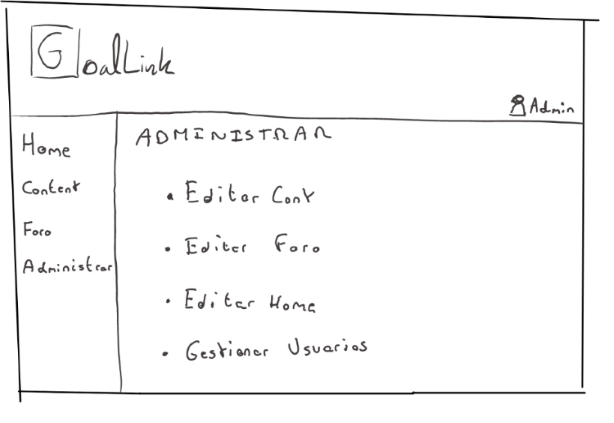 GoalLink
Admin
Home
Content
Foro
Administrar
ADMINISTRAR
• Editar Cont
• Editar Foro
• Editar Home
• Gestionar Usuarios